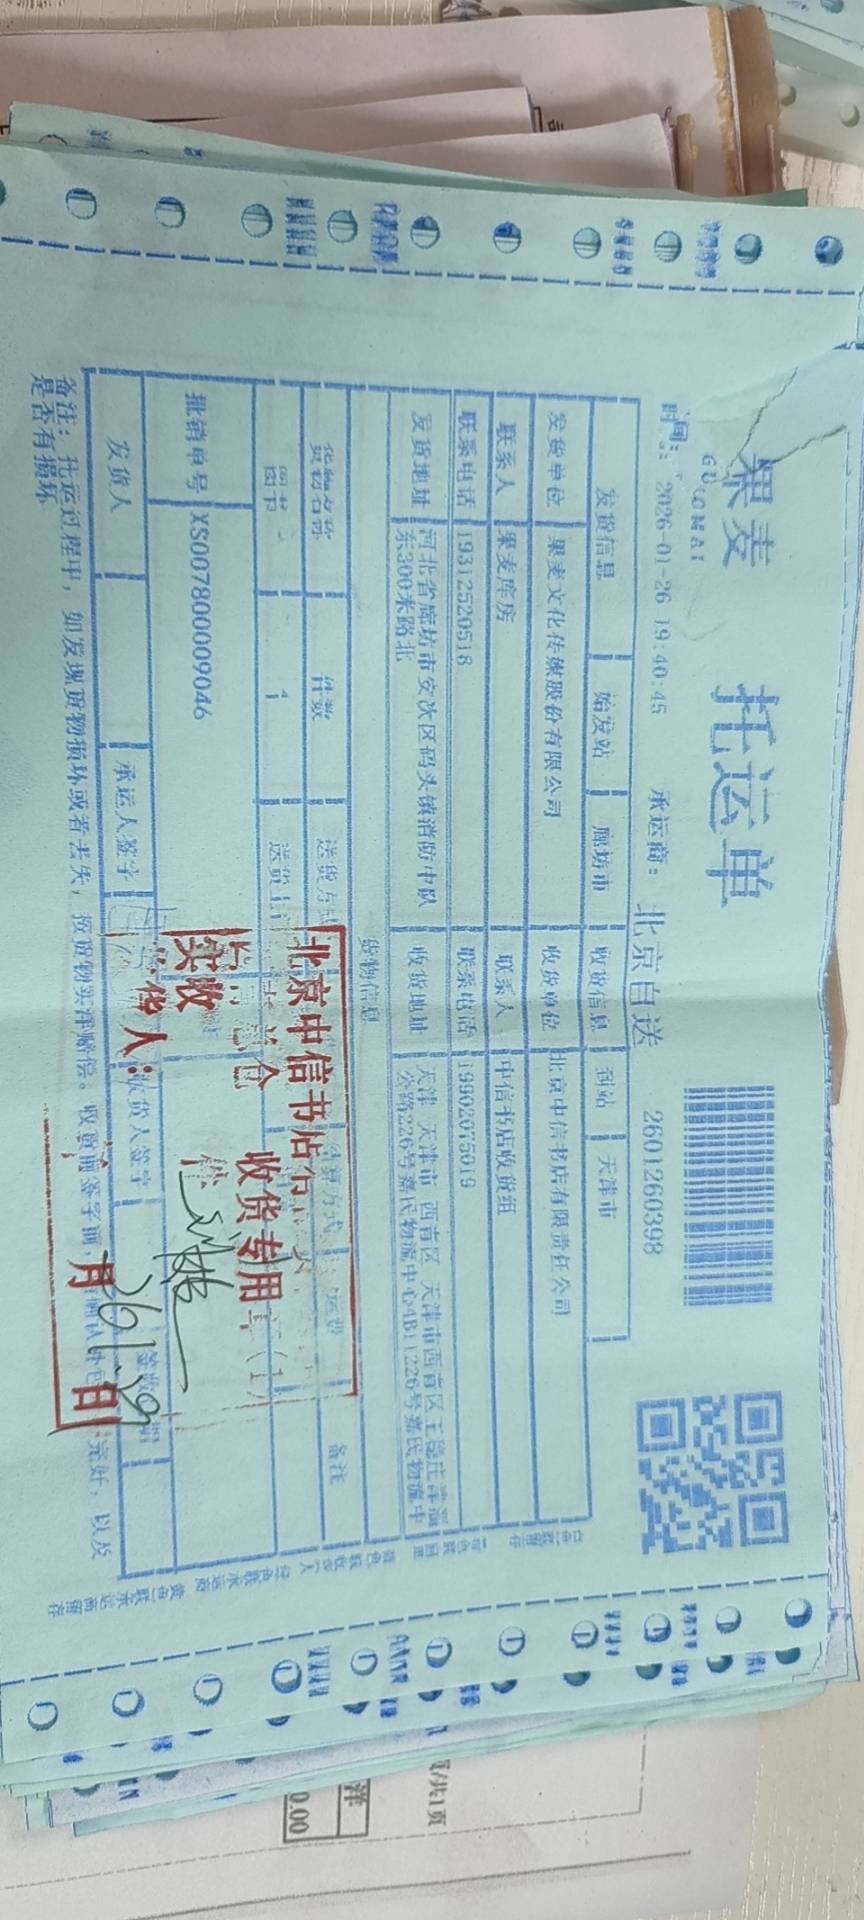 果麦
GUOMAI
托运单
2601260398
时间： 2026-01-26 19:40:45 承运商： 北京自送
发货信息 始发站 廊坊市 收货信息 到站 天津市
发货单位 果麦文化传媒股份有限公司 收货单位 北京中信书店有限责任公司
联系人 果麦库房 联系人 中信书店收货组
联系电话 19312520518 联系电话 19902075019
发货地址 河北省廊坊市安次区码头镇消防中队东300米路北 收货地址 天津 天津市 西青区 天津市西青区王稳庄津淄公路226号嘉民物流中心4B11226号嘉民物流中
货物信息
货物名称 件数 送货方式 运费 备注
图书 1 送货上
批销单号 XS007800009046
发货人 承运人签字 收货人签字
备注：托运过程中，如发现货物损坏或者丢失，按货物实洋赔偿。收货前签字前，
完好，以及
是否有损坏
北京中信书店
仓 收货专用章(1)
实收 件
收货人：
月 日
26 1.29
页/共1页
洋
0.00